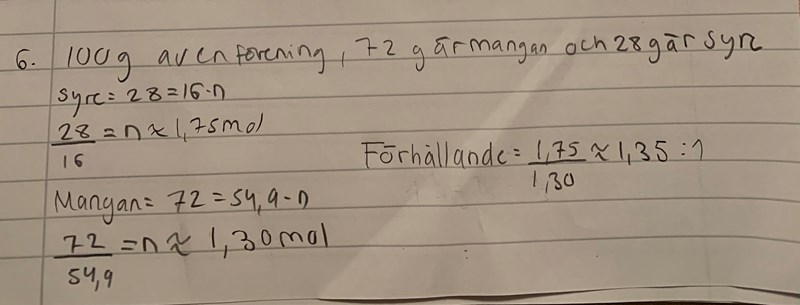 6. 100g av en förening, 72 g är mangan och 28 g är syre
syre = 28 = 16 · n
28/16 = n ≈ 1,75 mol
Förhållande = 1,75/1,30 ≈ 1,35 : 1
Mangan = 72 = 54,9 · n
72/54,9 = n ≈ 1,30 mol